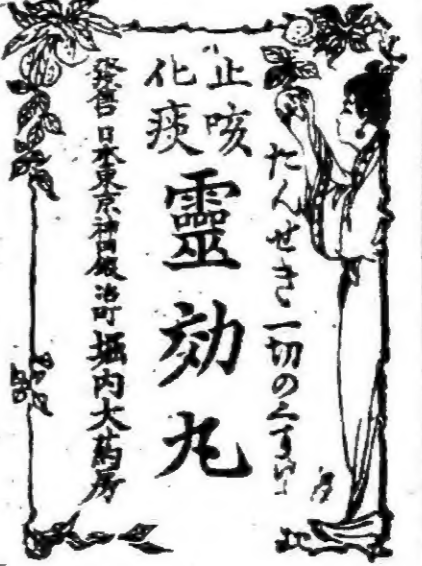 たんせき一切の
止咳
化痰
靈効丸
發售日本東京神田鍛冶町堀内大葯房